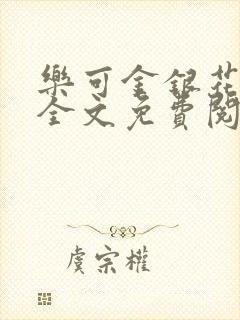 樂可金銀花
全文免費閱
虞宗權